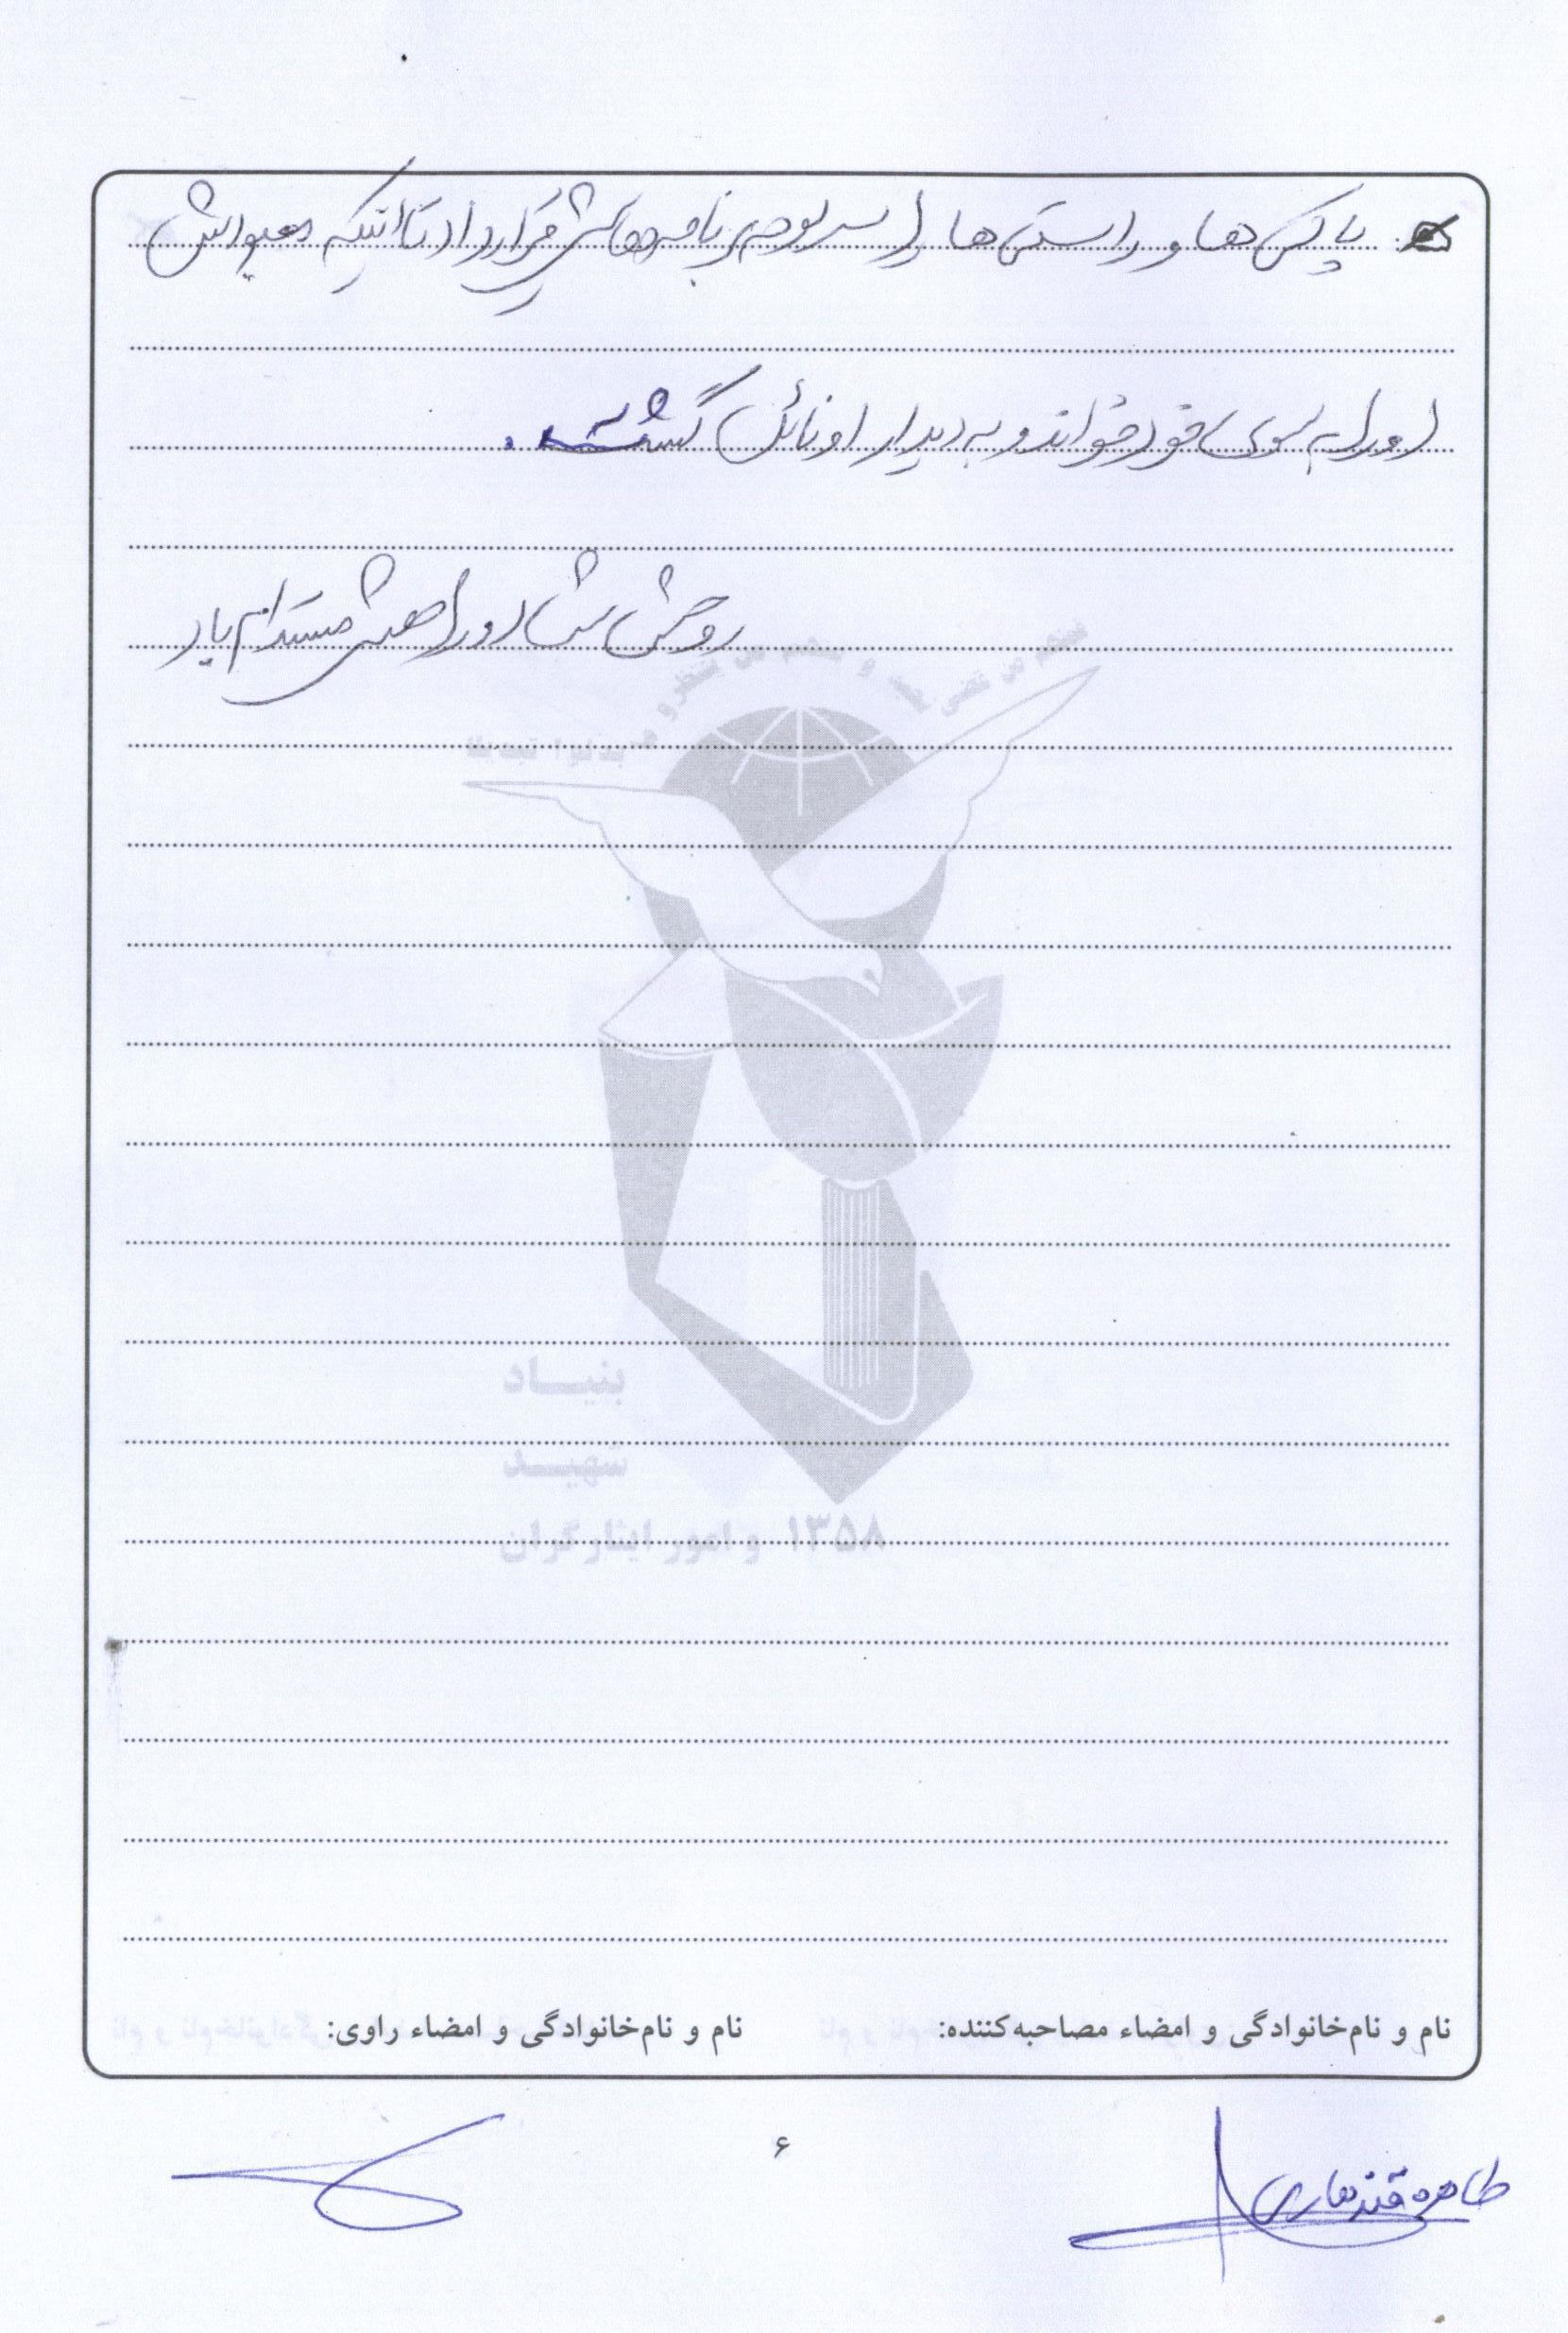 پاکی‌ها و راستی‌ها را سر لوحه برنامه‌هایش قرار داد تا اینکه معبودش
او را به سوی خود خواند و به دیدار او نائل گشت.
روحش شاد و راهش مستدام باد
بنیاد
شهید
و امور ایثارگران ۱۳۵۸
نام و نام‌خانوادگی و امضاء مصاحبه‌کننده: نام و نام‌خانوادگی و امضاء راوی:
طاهره قندهاری
۶